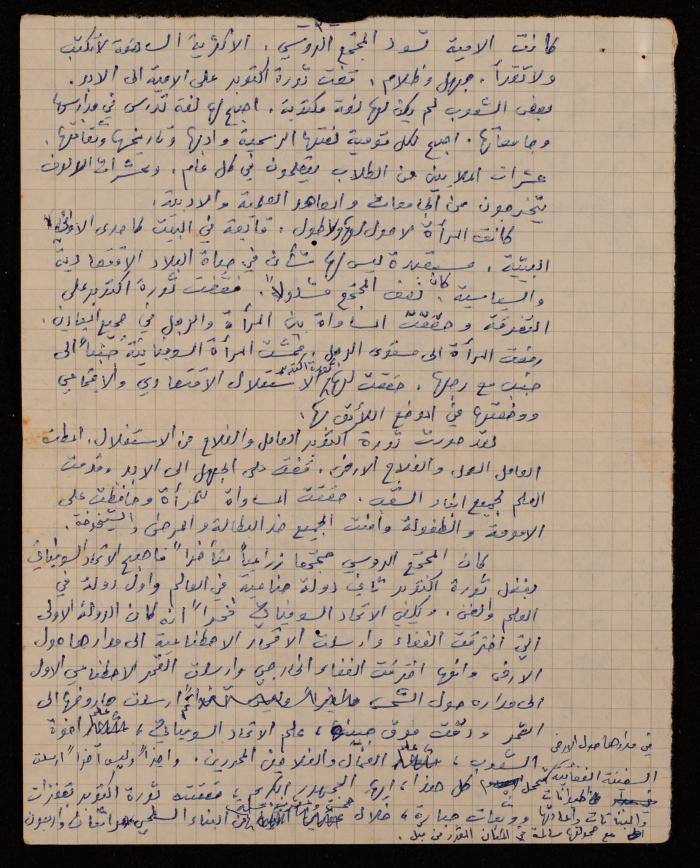 كانت الامية تسود المجتمع الروسي. الاكثرية الساحقة لا تكتب
ولا تقرأ. جهل وظلام. قضت ثورة اكتوبر على الامية الى الابد.
بعض الشعوب لم يكن لها لغة مكتوبة. اصبح لها لغة تدرس في مدارسها
وجامعاتها. اصبح لكل قومية لغتها الرسمية وادبها وتاريخها وثقافتها.
عشرات الملايين من الطلاب يتعلمون في كل عام. وعشرات الالوف
يتخرجون من الجامعات والمعاهد العلمية والادبية.
كانت المرأة لا حول لها ولا طول. قابعة في البيت كاحدى الاواني
البيتية. مستعبدة ليس لها شأن في حياة البلاد الاقتصادية
والسياسية. كان نصف المجتمع مشلولاً. فقضت ثورة اكتوبر على
التفرقة وحققت المساواة بين المرأة والرجل في جميع الميادين.
رفعت المرأة الى مستوى الرجل. فمشت المرأة السوفياتية جنباً الى
جنب مع رجلها. حققت لها ثورة اكتوبر الاستقلال الاقتصادي والاجتماعي
ووضعتها في الموضع اللائق لها.
لقد حررت ثورة اكتوبر العامل والفلاح من الاستغلال. اعطت
العامل العمل والفلاح الارض. قضت على الجهل الى الابد وقدمت
العلم لجميع ابناء الشعب. حققت المساواة للمرأة وحافظت على
الامومة والطفولة وأمنت الجميع ضد البطالة والمرض والشيخوخة.
كان المجتمع الروسي مجتمعا زراعياً متأخراً فاصبح الاتحاد السوفياتي
بفضل ثورة اكتوبر ثاني دولة صناعية في العالم واول دولة في
العلم والفن. ويكفي الاتحاد السوفياتي فخراً انه كان الدولة الاولى
التي اخترقت الفضاء وارسلت الاقمار الاصطناعية الى مدارها حول
الارض وانها اخترقت الفضاء الخارجي وارسلت القمر الاصطناعي الاول
الى مداره حول الشمس ارسلت صاروخها الى
القمر ودقت فوق جبينه، علم الاتحاد السوفياتي، علم اخوة
الشعوب، علم العمال والفلاحين المحررين. واخيراً وليس آخراً ارسلت
السفينة الفضائية تحمل في مدارها حول الارض
والنباتات واعادتها
مع حمولتها سالمة في المكان المقرر من قبل.
كل هذا، ايها الجمهور الكريم، حققته ثورة اكتوبر بقفزات
ووثبات جبارة، خلال من البناء السلمي واربعون